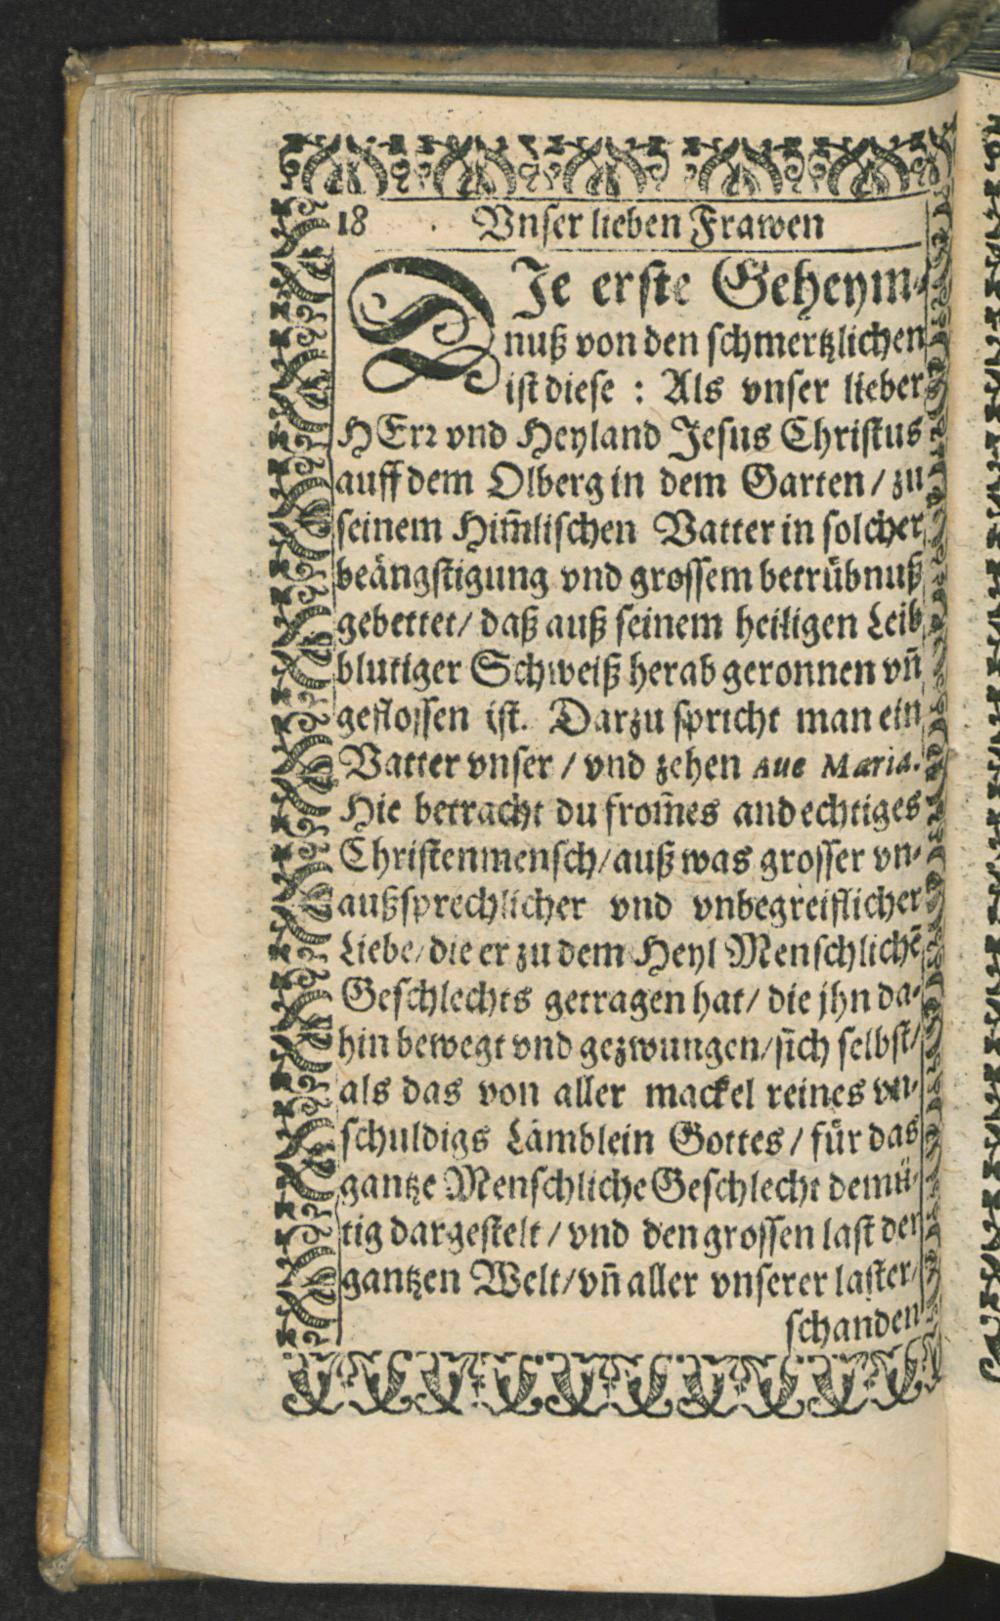 18 Vnser lieben Frawen
DJe erste Geheym-
nuß von den schmertzlichen
ist diese : Als vnser lieber
HErr vnd Heyland Jesus Christus
auff dem Olberg in dem Garten / zu
seinem Him̃lischen Vatter in solcher
beängstigung vnd grossem betrübnuß
gebettet / daß auß seinem heiligen Leib
blutiger Schweiß herab geronnen vñ
geflossen ist. Darzu spricht man ein
Vatter vnser / vnd zehen Aue Maria.
Hie betracht du from̃es andechtiges
Christenmensch / auß was grosser vn-
außsprechlicher vnd vnbegreiflicher
Liebe / die er zu dem Heyl Menschlichẽ
Geschlechts getragen hat / die jhn da-
hin bewegt vnd gezwungen / sich selbst /
als das von aller mackel reines vn-
schuldigs Lämblein Gottes / für das
gantze Menschliche Geschlecht demü-
tig dargestelt / vnd den grossen last der
gantzen Welt / vñ aller vnserer laster /
schanden